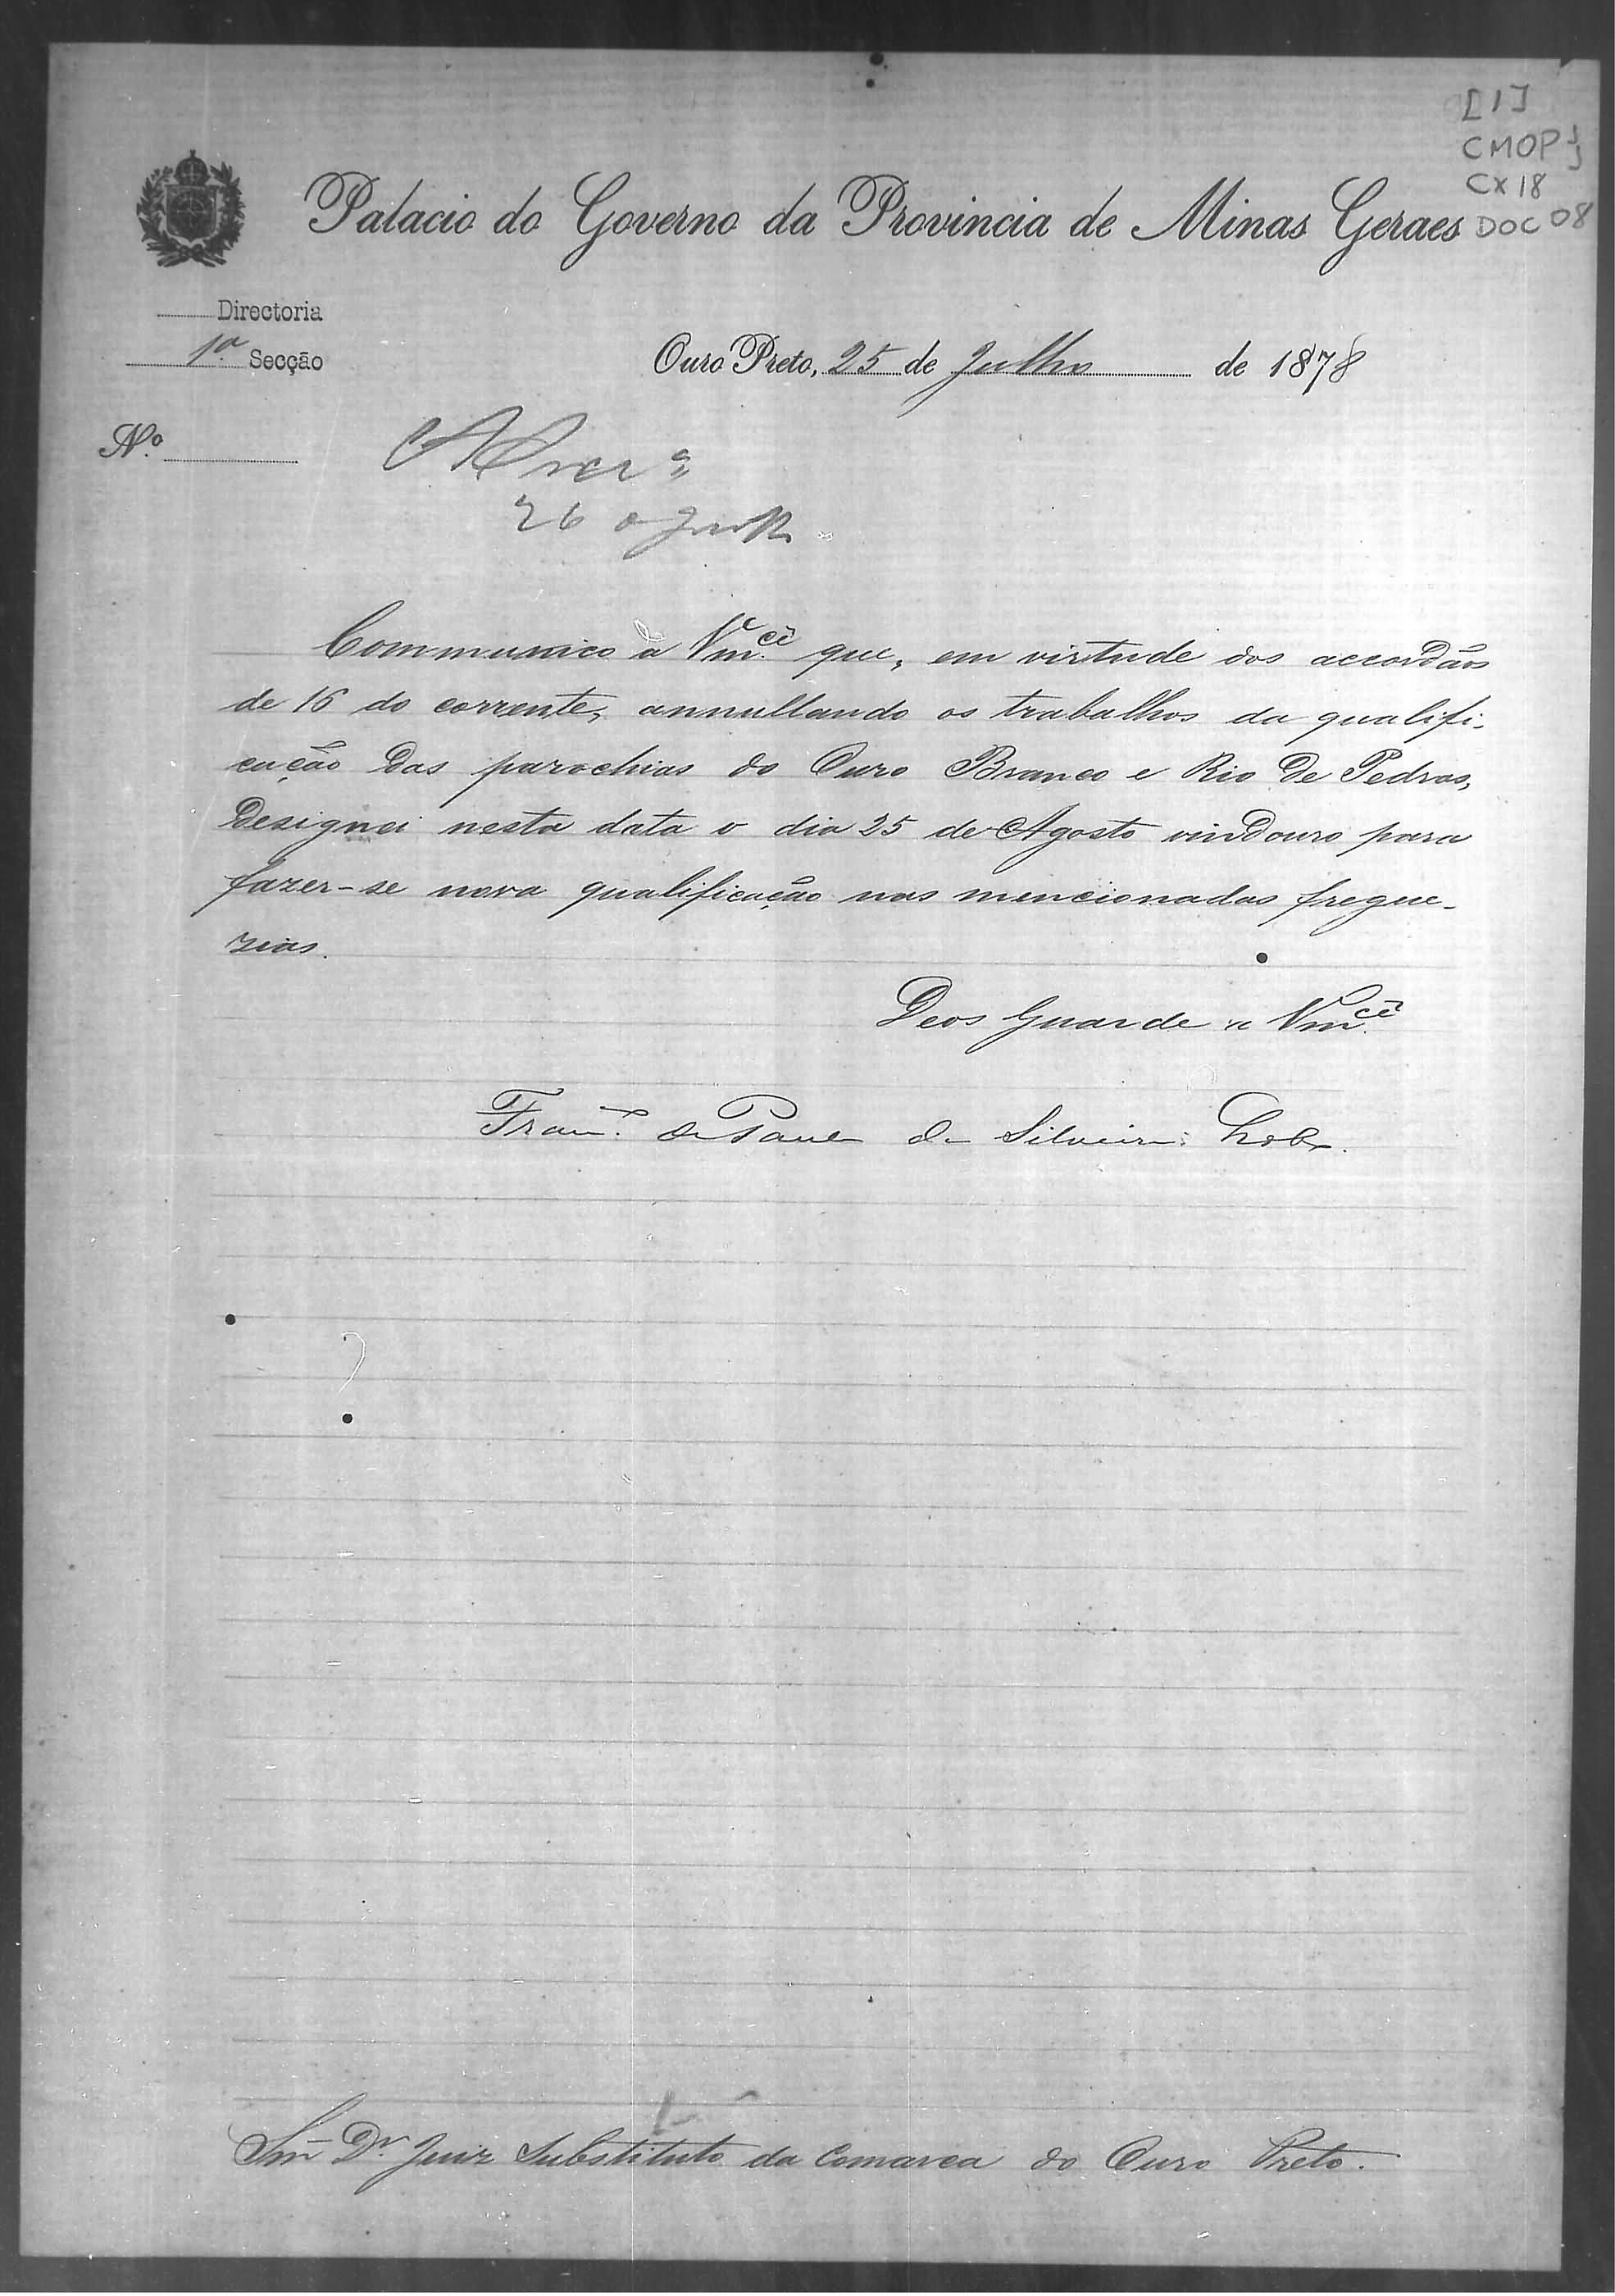 [1]
CMOP
CX 18
DOC 08
Palacio do Governo da Provincia de Minas Geraes
Directoria
1ª Secção
Ouro Preto, 25 de Julho de 1878
Nº
26
Communico a Vmcê que, em virtude dos accordãos
de 16 do corrente, annullando os trabalhos da qualifi-
cação das parochias do Ouro Branco e Rio de Pedras,
designei nesta data o dia 25 de Agosto vindouro para
fazer-se nova qualificação nas mencionadas fregue-
zias.
Deos Guarde a Vmcê
Franco de Paula da Silveira Lobo.
Snr Dr Juiz Substituto da Comarca do Ouro Preto.